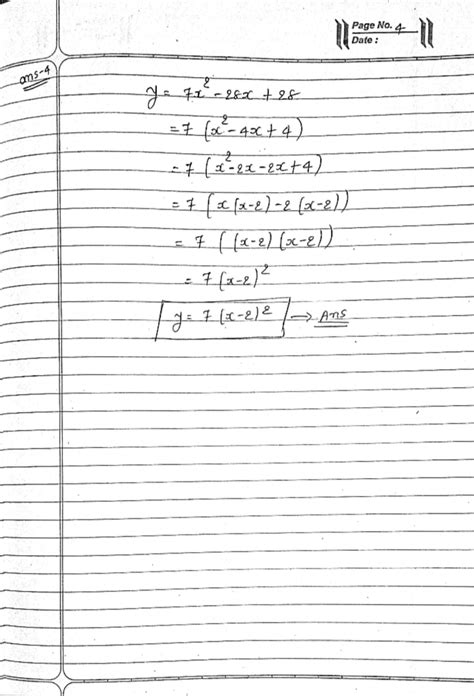 Page No. 4
Date :
ans-4
y = 7x² - 28x + 28
= 7 (x² - 4x + 4)
= 7 (x² - 2x - 2x + 4)
= 7 (x (x-2) - 2 (x-2))
= 7 ((x-2) (x-2))
= 7 (x-2)²
y = 7 (x-2)² → Ans